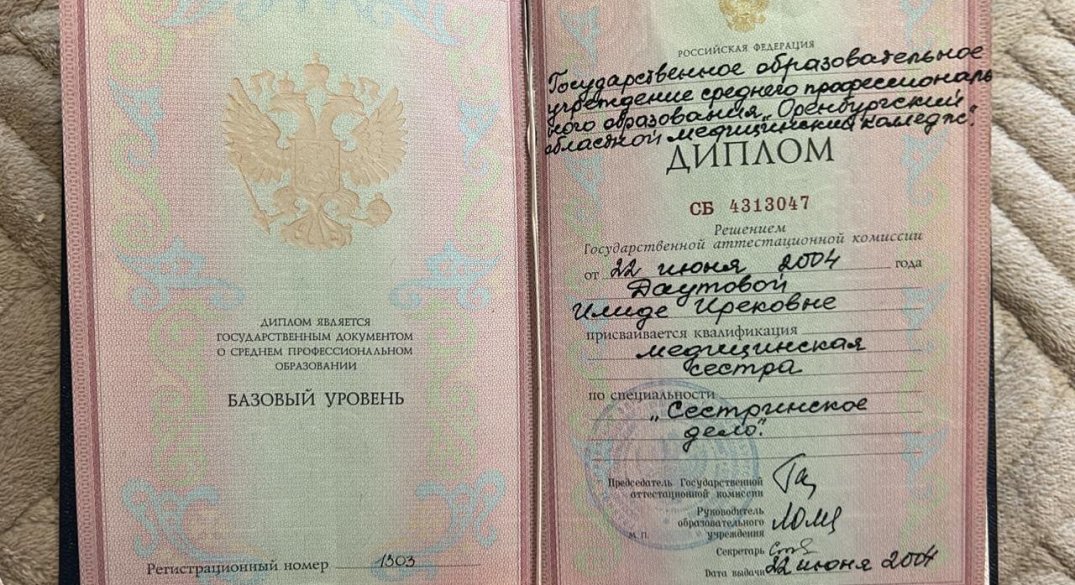 ДИПЛОМ ЯВЛЯЕТСЯ
ГОСУДАРСТВЕННЫМ ДОКУМЕНТОМ
О СРЕДНЕМ ПРОФЕССИОНАЛЬНОМ
ОБРАЗОВАНИИ
БАЗОВЫЙ УРОВЕНЬ
Регистрационный номер 1503
РОССИЙСКАЯ ФЕДЕРАЦИЯ
Государственное образовательное
учреждение среднего профессиональ
ного образования „Оренбургский
областной медицинский колледж"
ДИПЛОМ
СБ 4313047
Решением
Государственной аттестационной комиссии
от 22 июня 2004 года
Даутовой
Илиде Ирековне
присваивается квалификация
медицинская
сестра
по специальности
„Сестринское
дело".
Председатель Государственной
аттестационной комиссии
Руководитель
образовательного
учреждения
М.П.
Секретарь
Дата выдачи 22 июня 2004